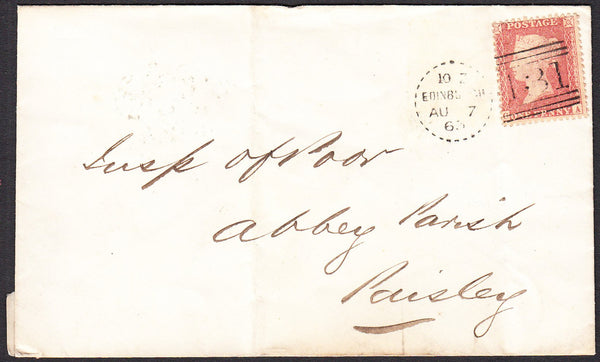 POSTAGE
131
ONE PENNY
10
EDINBURGH
AU 7
63
Insp of Poor
Abbey Parish
Paisley